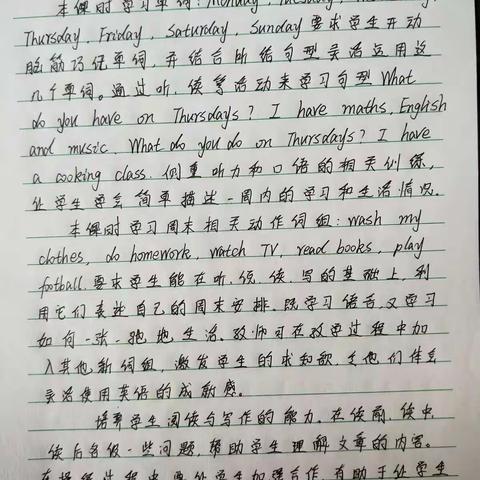 本课时学习单词: Monday, Tuesday, Wednesday,
Thursday, Friday, Saturday, Sunday 要求学生开动
脑筋巧记单词,并结合所给句型灵活运用这
几个单词。通过听、读等活动来学习句型 What
do you have on Thursdays? I have maths, English
and music. What do you do on Thursdays? I have
a cooking class. 侧重听力和口语的相关训练,
让学生学会简单描述一周内的学习和生活情况。
本课时学习周末相关动作词组: wash my
clothes, do homework, watch TV, read books, play
football. 要求学生能在听、说、读、写的基础上,利
用它们表述自己的周末安排。既学习语言,又学习
如何一张一弛地生活。教师可在教学过程中加
入其他新词组,激发学生的求知欲,让他们体会
灵活使用英语的成就感。
培养学生阅读与写作的能力。在读前、读中、
读后各设一些问题,帮助学生理解文章的内容。
过程中要让学生加强合作,有助于让学生